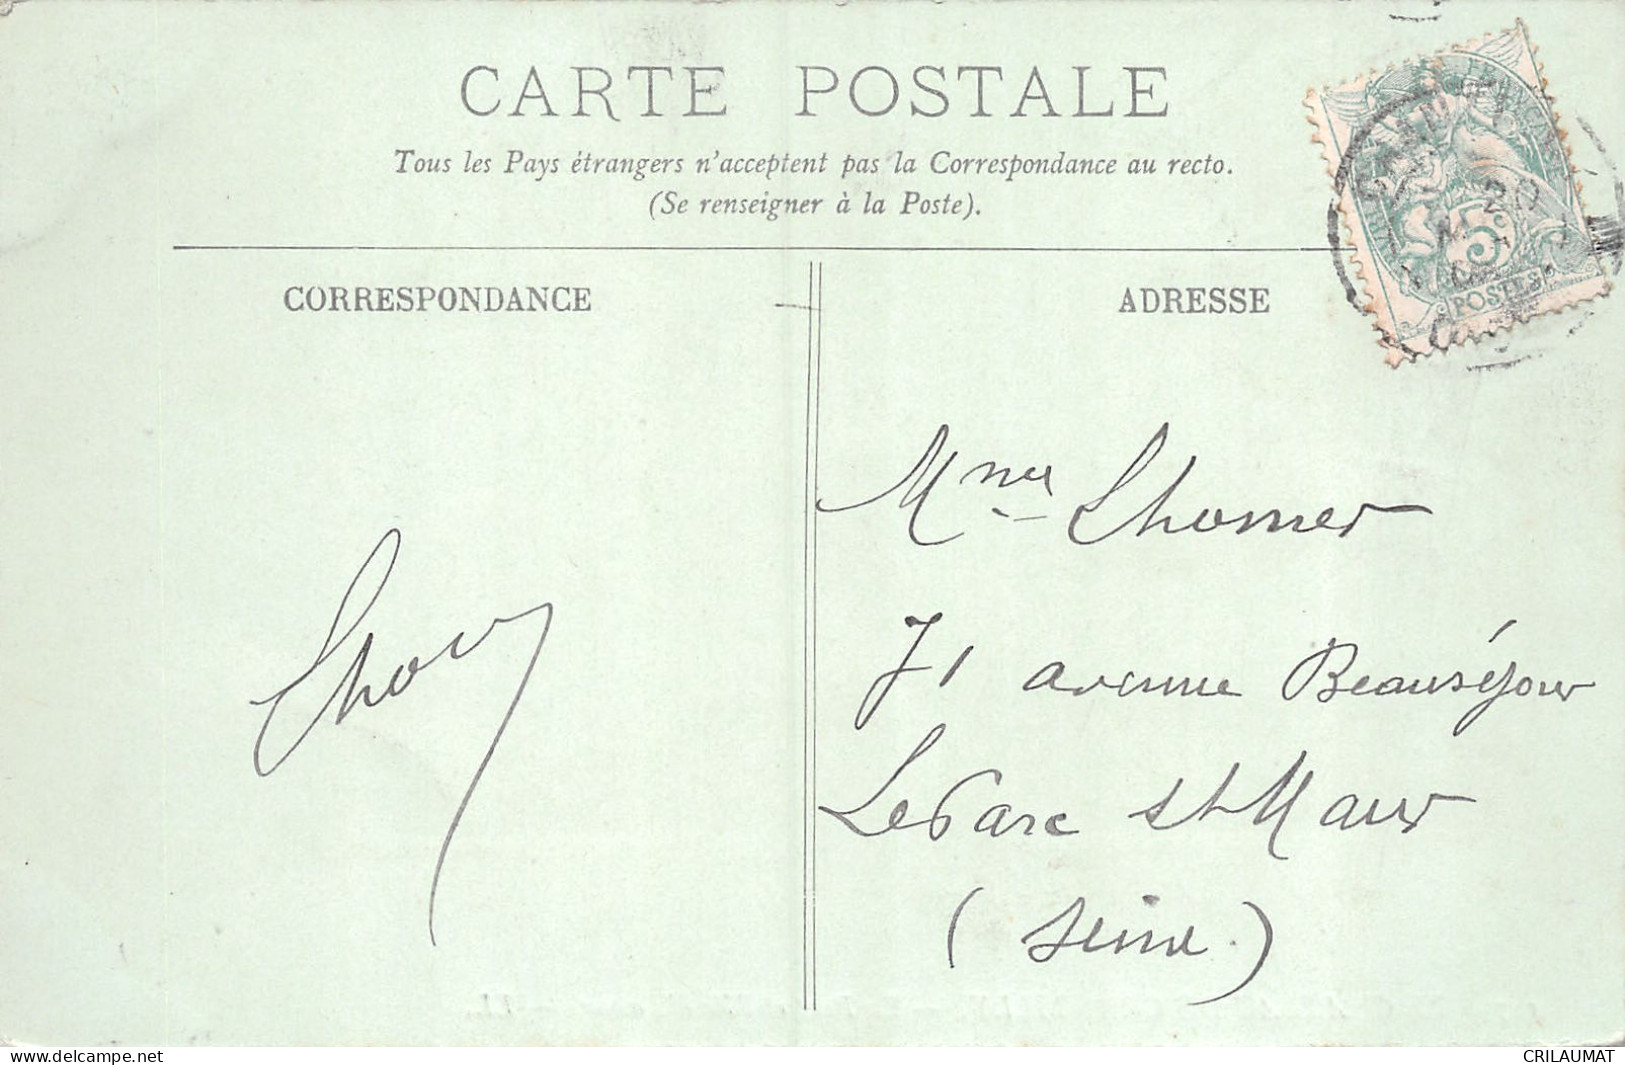 CARTE POSTALE
Tous les Pays étrangers n'acceptent pas la Correspondance au recto.
(Se renseigner à la Poste).
CORRESPONDANCE
ADRESSE
20
5c
POSTES
Mme Lhomer
71 avenue Beauséjour
Le Parc St Maur
(Seine.)
www.delcampe.net
CRILAUMAT